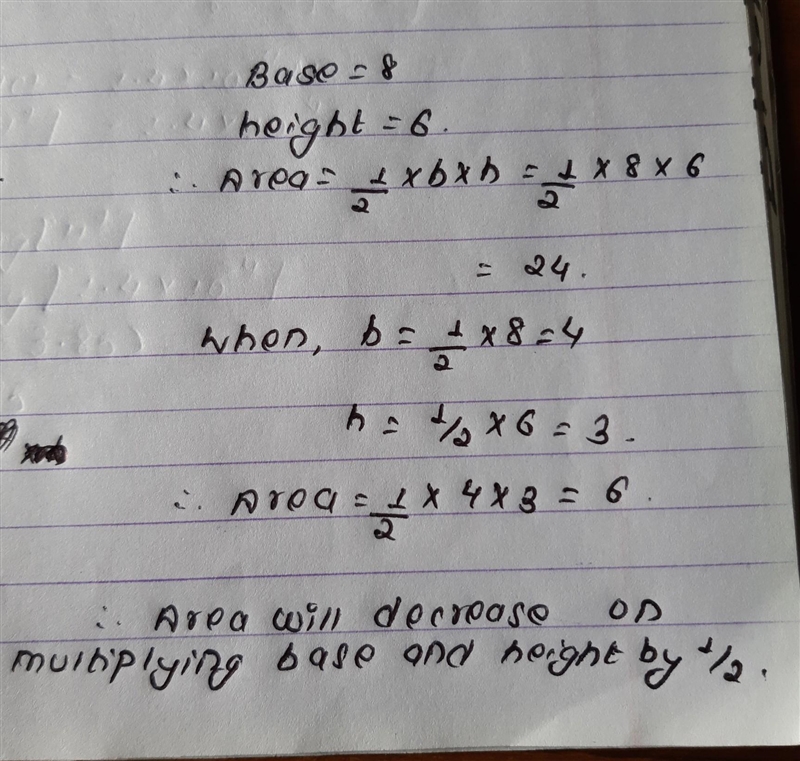 Base = 8
height = 6.
∴ Area = 1/2 × b × h = 1/2 × 8 × 6
= 24.
when, b = 1/2 × 8 = 4
h = 1/2 × 6 = 3.
∴ Area = 1/2 × 4 × 3 = 6.
∴ Area will decrease on
multiplying base and height by 1/2.